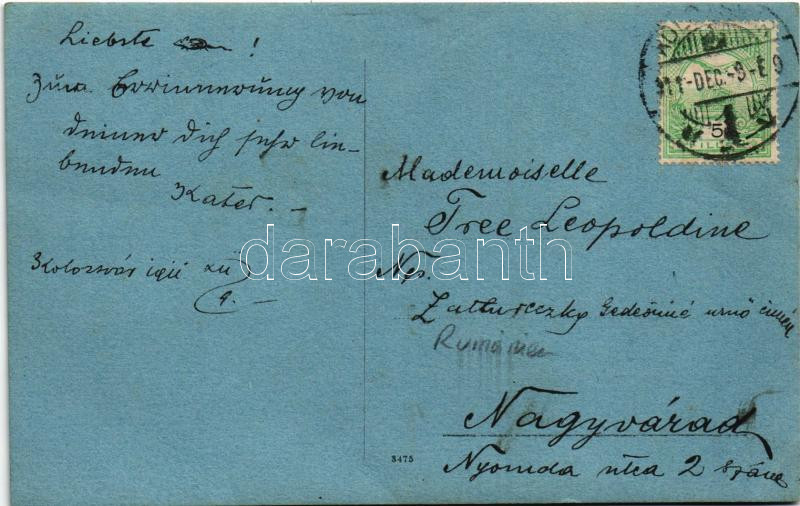 Liebste !
Zum Errinnerung von
deiner dich sehr lie-
benden
Kater. —
Kolozsvár
KOLOZSVÁR
911-DEC.-9-E 9
1
5
FILLÉR
Mademoiselle
Tree Leopoldine
Ngs.
Zatureczky Gedeonné urnő címén
Rumänien
Nagyvárad
Nyomda utca 2 szám
3475
darabanth